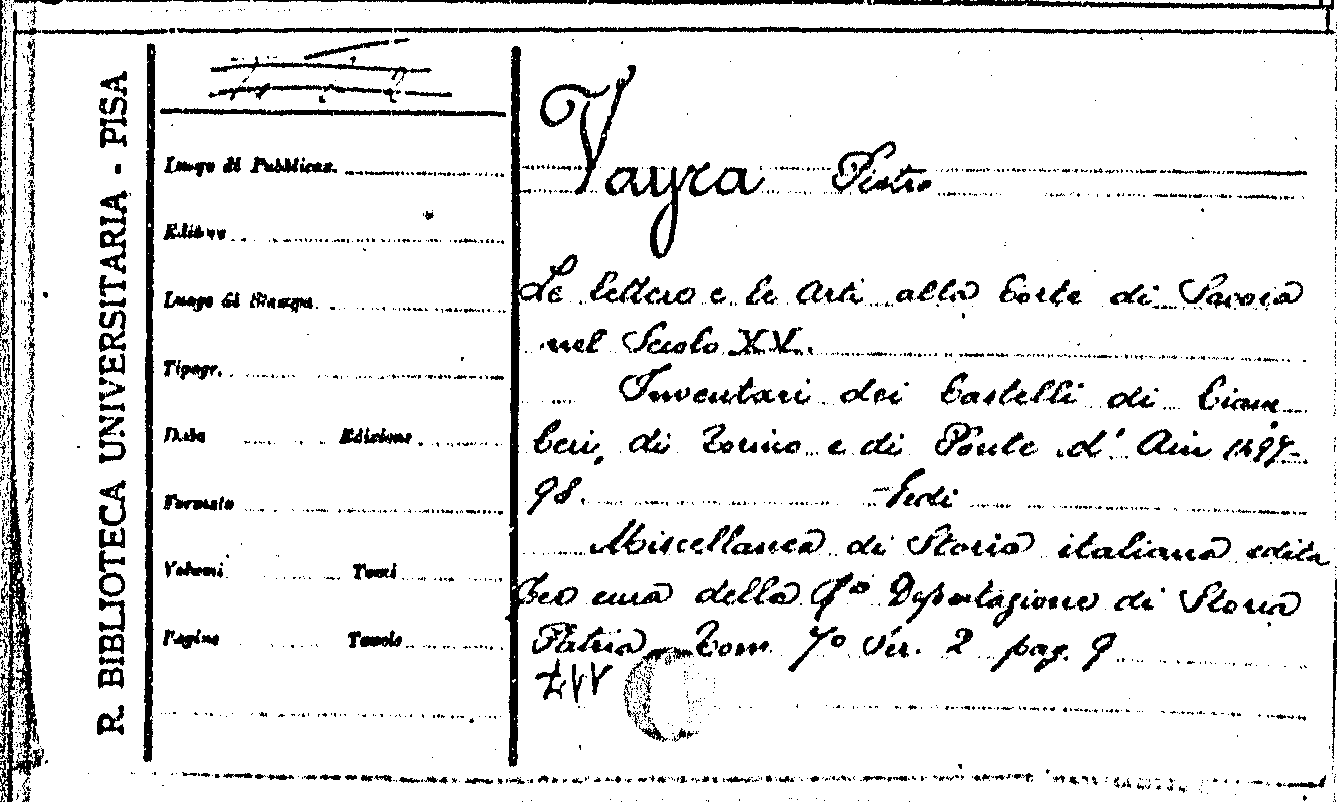 R. BIBLIOTECA UNIVERSITARIA - PISA
Luogo di Pubblicaz.
Editore
Luogo di Stampa
Tipogr.
Data Edizione
Formato
Volumi Tomi
Pagine Tavole
Vayra Pietro
Le lettere e le Arti alla Corte di Savoia
nel Secolo XV.
Inventari dei Castelli di Ciam-
beri, di Torino e di Ponte d' Ain 1497-
98. Vedi
Miscellanea di Storia italiana edita
per cura della Rª Deputazione di Storia
Patria Tom. 7º Ser. 2 pag. 9